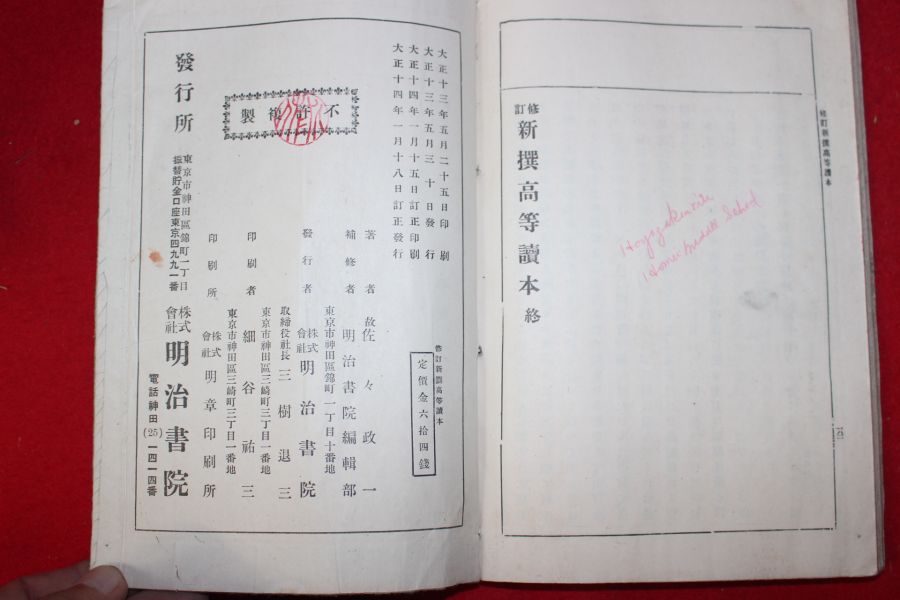 修訂新撰高等讀本
修訂 新撰高等讀本 終
Home Middle School
修訂新撰高等讀本
定價金六拾四錢
大正十三年五月二十五日印刷
大正十三年五月三十日發行
大正十四年一月十五日訂正印刷
大正十四年一月十八日訂正發行
不許複製
著者 故佐々政一
補修者 明治書院編輯部
東京市神田區錦町一丁目十番地
發行者 株式會社 明治書院
取締役社長 三樹退三
東京市神田區三崎町三丁目一番地
印刷者 細谷祐三
東京市神田區三崎町三丁目一番地
印刷所 株式會社 明章印刷所
發行所
東京市神田區錦町一丁目
振替貯金口座東京四九九一番
株式會社 明治書院
電話神田(25)一四一四番